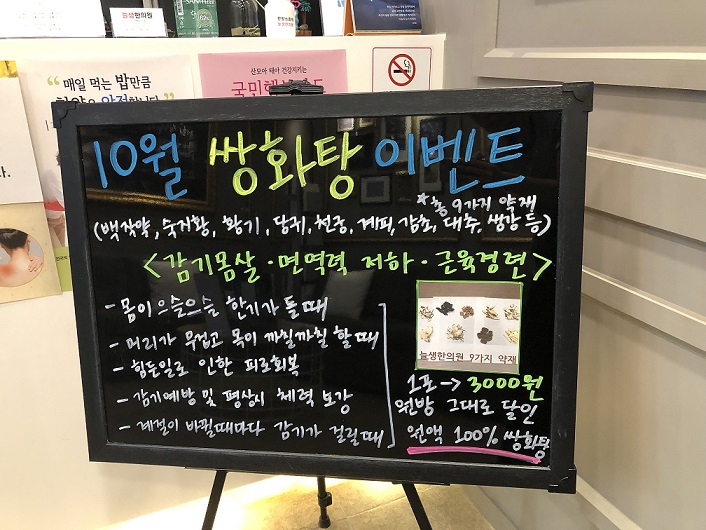 늘생한의원
" 매일 먹는 밥만큼
산모와 태아 건강지키는
10월 쌍화탕 이벤트
*총 9가지 약재
(백작약, 숙지황, 황기, 당귀, 천궁, 계피, 감초, 대추, 생강 등)
<감기몸살·면역력 저하·근육경련>
- 몸이 으슬으슬 한기가 돌때
- 머리가 무겁고 목이 까칠까칠 할때
- 힘든일로 인한 피로회복
- 감기예방 및 평상시 체력 보강
- 계절이 바뀔때마다 감기가 걸릴때
늘생한의원 9가지 약재
1포 → 3000원
원방 그대로 달인
원액 100% 쌍화탕